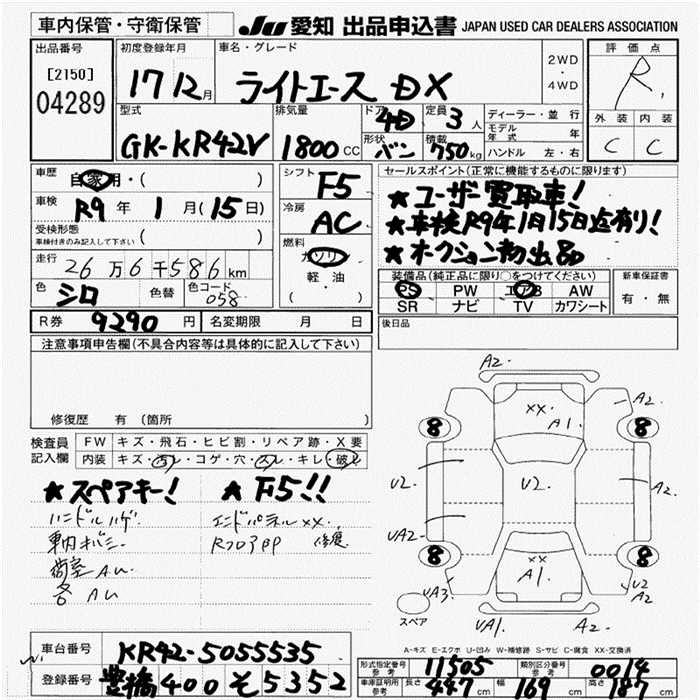 車内保管・守衛保管
JU 愛知 出品申込書 JAPAN USED CAR DEALERS ASSOCIATION
出品番号
[2150]
04289
初度登録年月
17 12月
車名・グレード
ライトエース DX
2WD
・
4WD
評価点
R,
外装 内装
C C
型式
GK-KR42V
排気量
1800 CC
ドア
4D
形状
バン
定員
3 人
積載
750 kg
ディーラー・並行
モデル年式 年
ハンドル 左・右
車歴
自家用・( )
車検
R9 年 1 月 (15 日)
受検形態
車検付きのみ記入して下さい ( )
走行
26 万 6 千 586 km
色
シロ
色替
色コード
058
シフト
F5
冷房
AC
燃料
ガソリン
軽・油
( )
セールスポイント(正常に機能するものに限ります)
★ユーザー買取車!
★車検R9年1月15日迄有り!
★オークション初出品
装備品(純正品に限り○をつけてください)
PS PW エアB AW
SR ナビ TV カワシート
新車保証書
有・無
R券 9290 円
名変期限 月 日
後日品
注意事項申告欄(不具合内容等は具体的に記入して下さい)
修復歴 有(箇所 )
検査員記入欄
FW キズ・飛石・ヒビ割・リペア跡・X要
内装 キズ・汚レ・コゲ・穴・スレ・キレ・破レ
★スペアキー! ★F5!!
ハンドルハゲ エンドパネルXX.
車内オバミー Rフロア凹 修
荷室AU
各AU
A2.
XX
A1.
A2.
8 8
U2
U2.
A2
UA2
8 8
XX
A1
UA3
U2
A2
UA1.
A2.
スペア
A-キズ E-エクボ U-凹み W-補修跡 S-サビ C-腐食 XX-交換済
車台番号 KR42-5055535
登録番号 豊橋 400 そ 5352
形式指定番号
参考 11505
類別区分番号
参考 0014
車庫証明用
参考 長さ 447 cm 幅 169 cm 高さ 187 cm